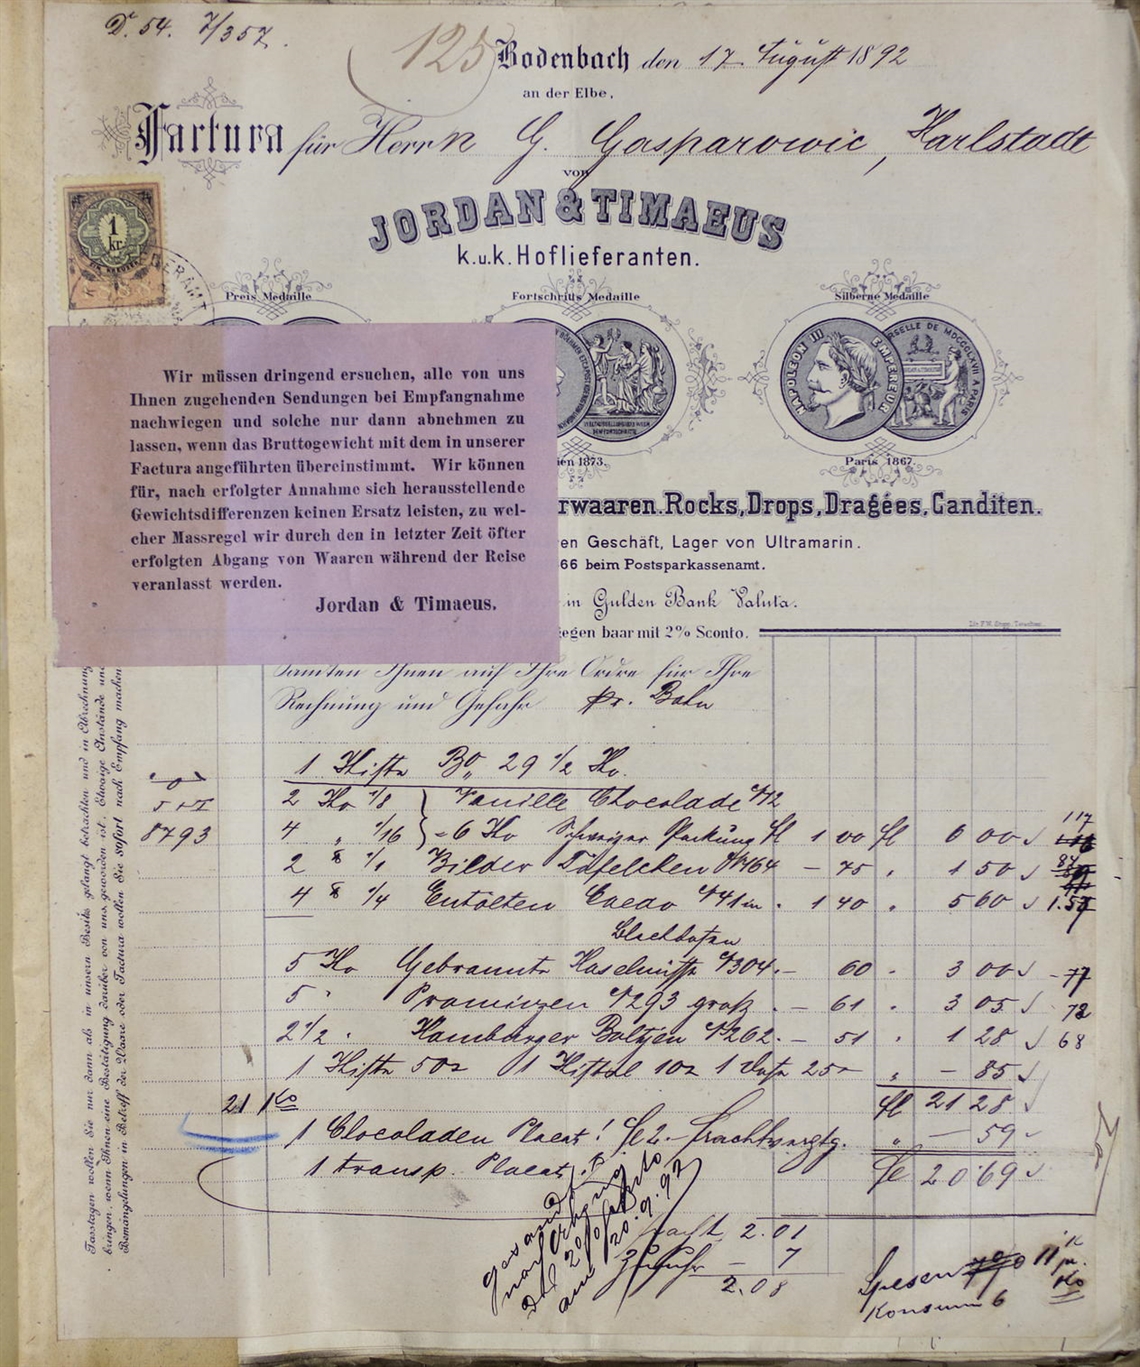 Dr. 54. 7/357.
125
Bodenbach den 17 August 1892
an der Elbe.
Factura für Herrn G. Gasparowic, Karlstadt
von
JORDAN & TIMAEUS
k.u.k. Hoflieferanten.
1
kr.
Preis Medaille
Fortschritts Medaille
Silberne Medaille
NAPOLEON III EMPEREUR
Wien 1873.
Paris 1867.
Wir müssen dringend ersuchen, alle von uns
Ihnen zugehenden Sendungen bei Empfangnahme
nachwiegen und solche nur dann abnehmen zu
lassen, wenn das Bruttogewicht mit dem in unserer
Factura angeführten übereinstimmt. Wir können
für, nach erfolgter Annahme sich herausstellende
Gewichtsdifferenzen keinen Ersatz leisten, zu wel-
cher Massregel wir durch den in letzter Zeit öfter
erfolgten Abgang von Waaren während der Reise
veranlasst werden.
Jordan & Timaeus.
rwaaren. Rocks, Drops, Dragées, Canditen.
en Geschäft, Lager von Ultramarin.
66 beim Postsparkassenamt.
in Gulden Bank Valuta.
gegen baar mit 2% Sconto.
Sandten Ihnen auf Ihre Ordre für Ihre
Rechnung und Gefahr pr. Bahn
1 Kiste Bo 29 1/2 Ko.
2 Ko 1/8 } Vanille Chocolade № 12
8793 4 " 1/16 } = 6 Ko Schweizer Packung fl 1 00 fl 6 00 117
2 " 1/1 Bilder Täfelchen № 464 - 75 . 1 50 87
4 " 1/4 Entölten Cacao № 41 in . 1 40 . 5 60 1.57
Blechdosen
5 Ko Gebrannte Haselnüsse № 304. - 60 . 3 00 - 77
5 " Praminzen № 293 groß . - 61 . 3 05 72
2 1/2 . Hamburger Boltjen № 262. - 51 . 1 28 68
1 Kiste 50 1 Kistel 10 1 Dose 25 " - 85
21 Ko fl 21 28
1 Chocoladen Placat! fl 2.- Frachtvergtg. " - 59
1 transp. Placat fl 20 69
Fracht 2.01
Zufuhr - 7
2.08
gesandt
am 20.9.92
Spesen 11 kr
pr. Ko
Konsum 6
Fasstagen wollen Sie nur dann als in unsern Besitz gelangt betrachten und in Abrechnung
bringen, wenn Ihnen eine Bestätigung darüber von uns geworden ist. Etwaige Anstände und
Bemängelungen in Betreff der Waare oder Factura wollen Sie sofort nach Empfang machen